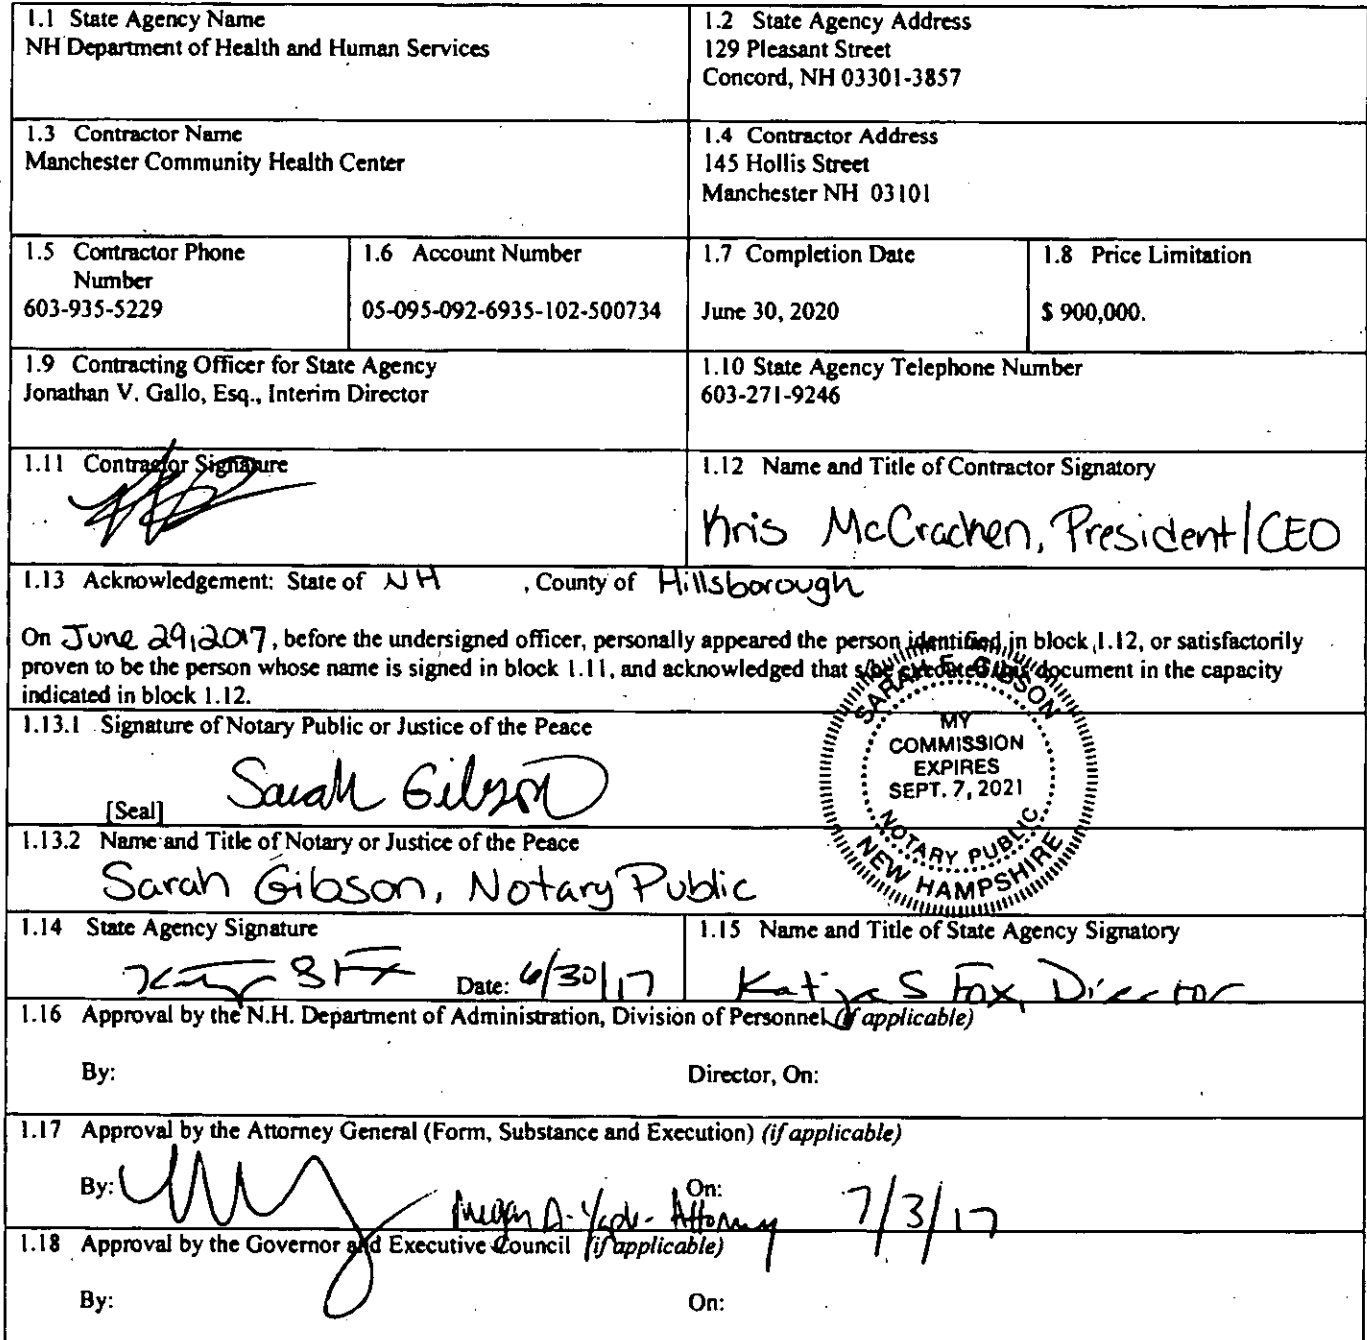 1.1 State Agency Name
NH Department of Health and Human Services
1.2 State Agency Address
129 Pleasant Street
Concord, NH 03301-3857
1.3 Contractor Name
Manchester Community Health Center
1.4 Contractor Address
145 Hollis Street
Manchester NH 03101
1.5 Contractor Phone
Number
603-935-5229
1.6 Account Number
05-095-092-6935-102-500734
1.7 Completion Date
June 30, 2020
1.8 Price Limitation
$ 900,000.
1.9 Contracting Officer for State Agency
Jonathan V. Gallo, Esq., Interim Director
1.10 State Agency Telephone Number
603-271-9246
1.11 Contractor Signature
1.12 Name and Title of Contractor Signatory
Kris McCracken, President/CEO
1.13 Acknowledgement: State of NH , County of Hillsborough
On June 29, 2017, before the undersigned officer, personally appeared the person identified in block 1.12, or satisfactorily
proven to be the person whose name is signed in block 1.11, and acknowledged that s/he executed this document in the capacity
indicated in block 1.12.
1.13.1 Signature of Notary Public or Justice of the Peace
Sarah Gibson
[Seal]
SARAH E. GIBSON
MY
COMMISSION
EXPIRES
SEPT. 7, 2021
NOTARY PUBLIC
NEW HAMPSHIRE
1.13.2 Name and Title of Notary or Justice of the Peace
Sarah Gibson, Notary Public
1.14 State Agency Signature
Date: 6/30/17
1.15 Name and Title of State Agency Signatory
Katja S Fox, Director
1.16 Approval by the N.H. Department of Administration, Division of Personnel (if applicable)
By:
Director, On:
1.17 Approval by the Attorney General (Form, Substance and Execution) (if applicable)
By: Megan A. - Attorney On: 7/3/17
1.18 Approval by the Governor and Executive Council (if applicable)
By:
On: